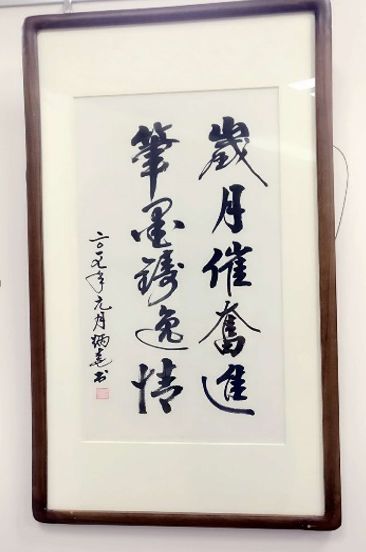 歲月催奮進
筆墨鑄逸情
二〇一九年元月炳堯書